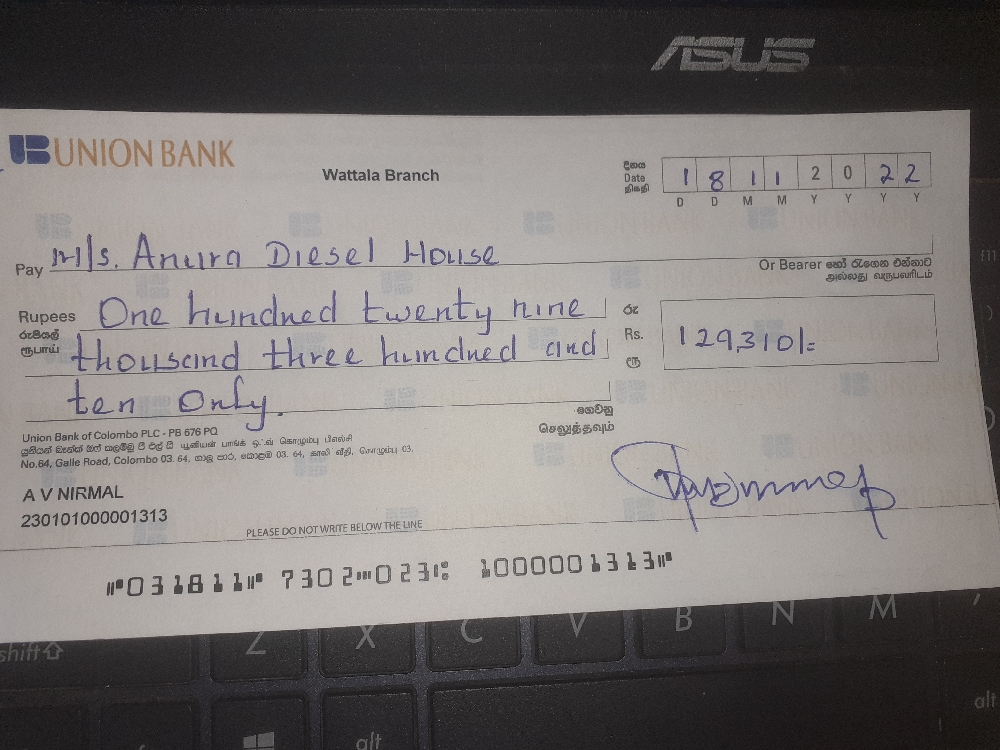 ASUS
UNION BANK
Wattala Branch
දිනය
Date
திகதி
1 8 1 1 2 0 2 2
D D M M Y Y Y Y
Pay M/s. Anura Diesel House
Or Bearer හෝ රැගෙන එන්නාට
அல்லது வருபவரிடம்
Rupees One hundred twenty nine
රුපියල්
ரூபாய்
thousand three hundred and
ten Only.
රු
Rs.
ரூ
129,310/=
ගෙවනු
செலுத்தவும்
Union Bank of Colombo PLC - PB 676 PQ
යූනියන් බෑන්ක් ඔෆ් කළම්බු පී එල් සී யூனியன் பாங்க் ஒவ் கொழும்பு பிஎல்சி
No.64, Galle Road, Colombo 03. 64, ගාලු පාර, කොළඹ 03. 64, காலி வீதி, கொழும்பு 03.
A V NIRMAL
230101000001313
PLEASE DO NOT WRITE BELOW THE LINE
⑈031811⑈ 7302⑉023⑆ 1000001313⑈
shift Z X C V B N M ,
alt alt